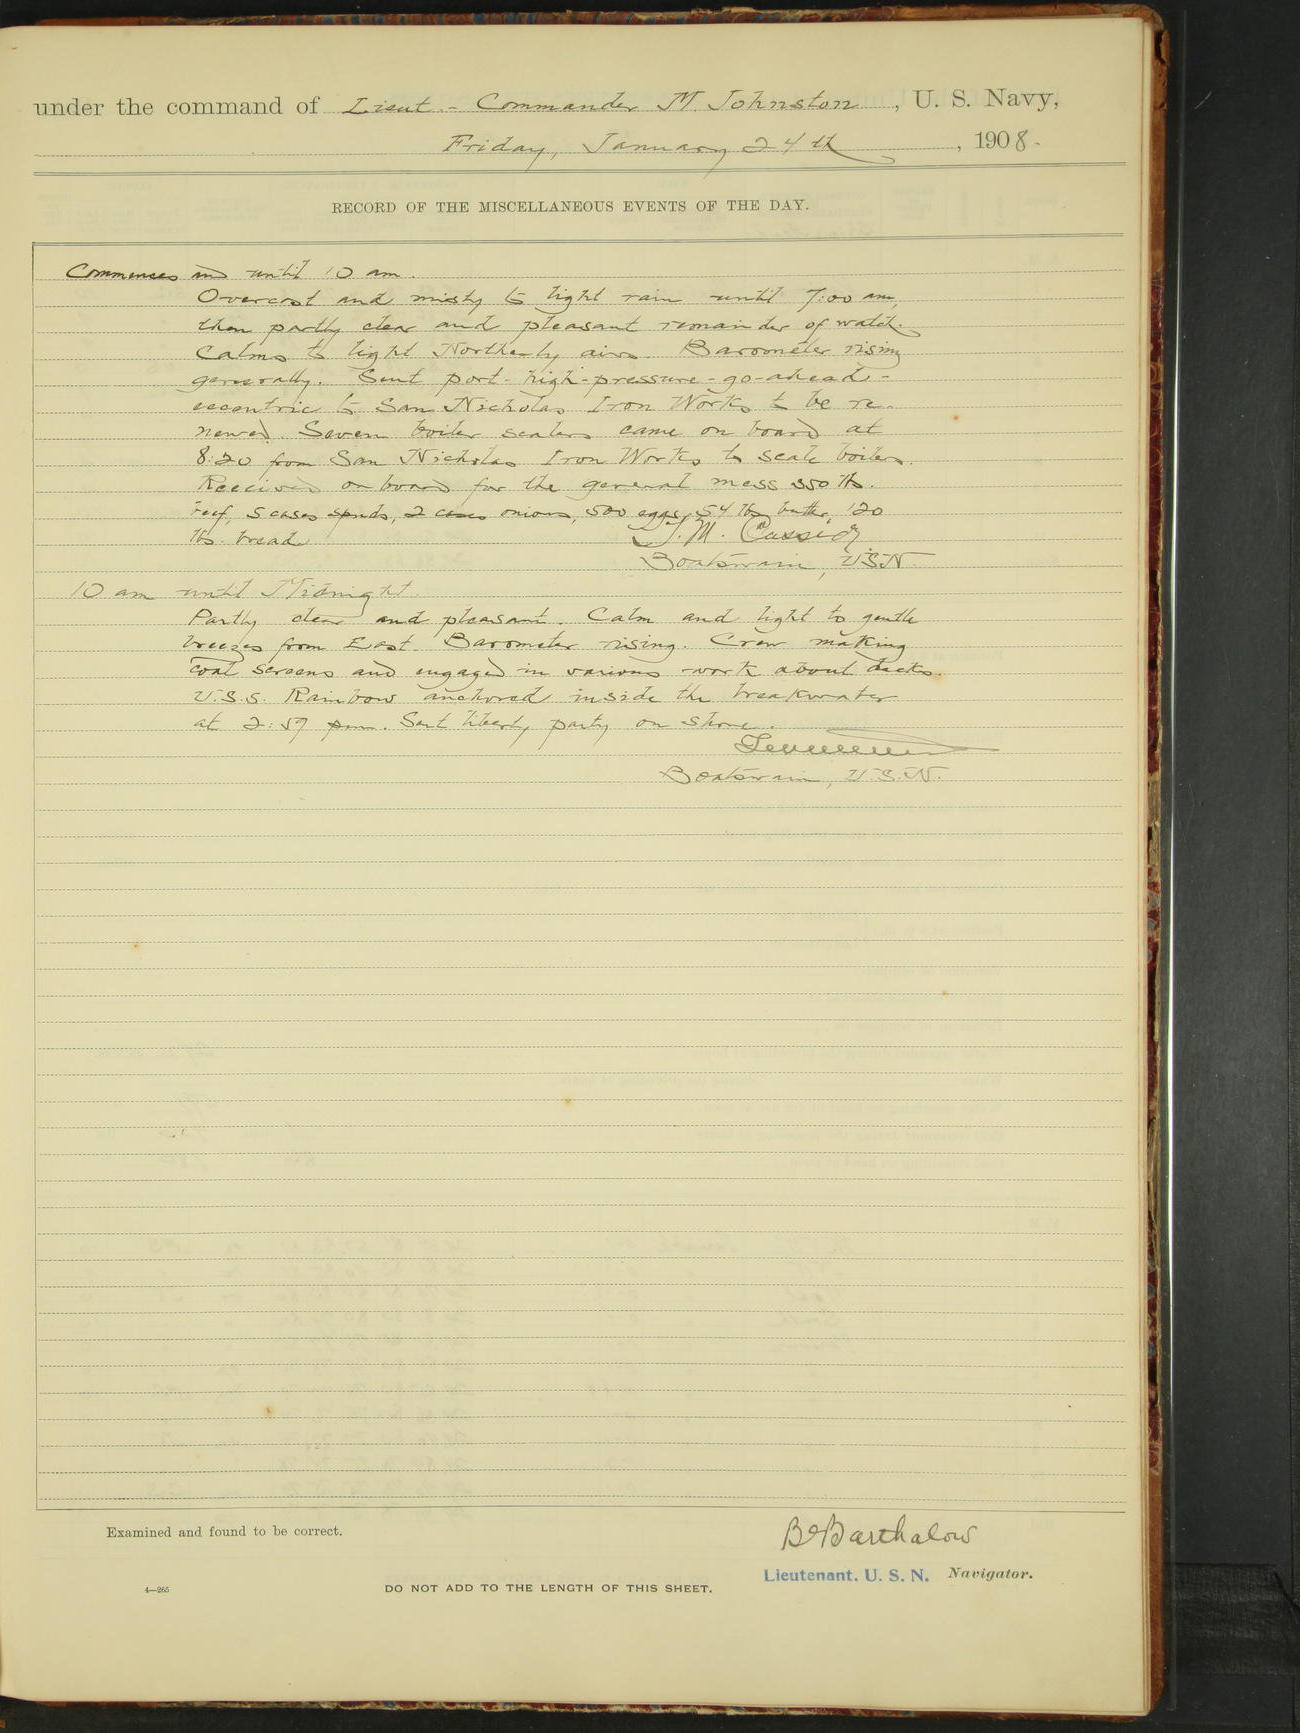 under the command of Lieut.- Commander M Johnston, U. S. Navy,
Friday, January 24th, 1908.
RECORD OF THE MISCELLANEOUS EVENTS OF THE DAY.
Commences and until 10 am.
Overcast and misty to light rain until 7:00 am,
then partly clear and pleasant remainder of watch.
Calms to light Northerly airs. Barometer rising
generally. Sent port-high-pressure-go-ahead-
eccentric to San Nicholas Iron Works to be re-
newed. Seven boiler scalers came on board at
8:20 from San Nicholas Iron Works to scale boilers.
Received on board for the general mess 350 lbs.
beef, 5 cases spuds, 2 cases onions, 500 eggs, 54 lbs butter, 120
lbs. bread
J. M. Cassidy
Boatswain, U.S.N.
10 am until Midnight.
Partly clear and pleasant. Calm and light to gentle
breezes from East. Barometer rising. Crew making
coal screens and engaged in various work about decks.
U.S.S. Rainbow anchored inside the breakwater
at 2:59 pm. Sent liberty party on shore.
Boatswain, U.S.N.
Examined and found to be correct.
B Barthalow
Lieutenant. U. S. N. Navigator.
4—265
DO NOT ADD TO THE LENGTH OF THIS SHEET.